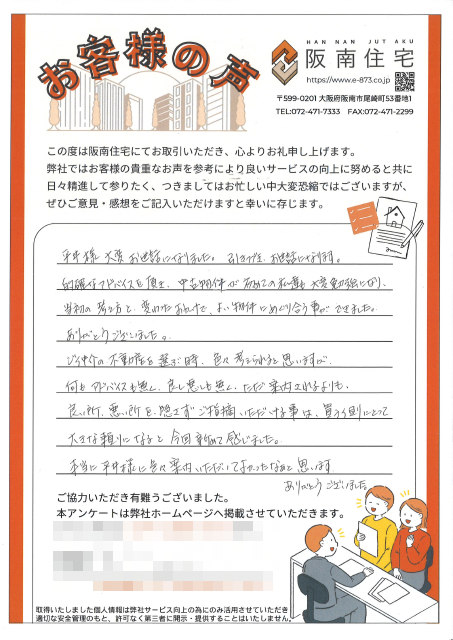 お客様の声
HAN NAN JUTAKU
阪南住宅
https://www.e-873.co.jp
〒599-0201 大阪府阪南市尾崎町53番地1
TEL:072-471-7333 FAX:072-471-2299
この度は阪南住宅にてお取引いただき、心よりお礼申し上げます。
弊社ではお客様の貴重なお声を参考により良いサービスの向上に努めると共に
日々精進して参りたく、つきましてはお忙しい中大変恐縮ではございますが、
ぜひご意見・感想をご記入いただけますと幸いに存じます。
平井様 大変 お世話になりました。引き続き、お世話になります。
的確なアドバイスを頂き、中古物件が初めての私達も大変勉強になり、
当初の考え方と変わったおかげで、よい物件にめぐり合う事ができました。
ありがとうございました。
ご仲介の不動産を選ぶ時、色々考えられると思いますが、
何も アドバイスも無く、良し悪しも無く、ただ案内されるよりも、
良い所、悪い所を隠さずご指摘いただける事は、買う側にとって
大きな頼りになると今回改めて感じました。
本当に平井様に色々案内いただいてよかったなあと思います
ありがとうございました。
ご協力いただき有難うございました。
本アンケートは弊社ホームページへ掲載させていただきます。
取得いたしました個人情報は弊社サービス向上の為にのみ活用させていただき
適切な安全管理のもと、許可なく第三者に開示・提供することはいたしません。